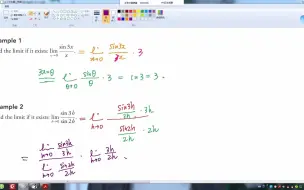 ample 1
d the limit if it exists: lim x→0 sin3x/x = lim x→0 sin3x/3x · 3
3x=θ lim θ→0 sinθ/θ · 3 = 1×3 = 3.
ample 2
d the limit if it exists: lim h→0 sin3h/sin2h = lim h→0 (sin3h/3h · 3h)/(sin2h/2h · 2h)
= (lim h→0 sin3h/3h)/(lim h→0 sin2h/2h) · lim h→0 3h/2h